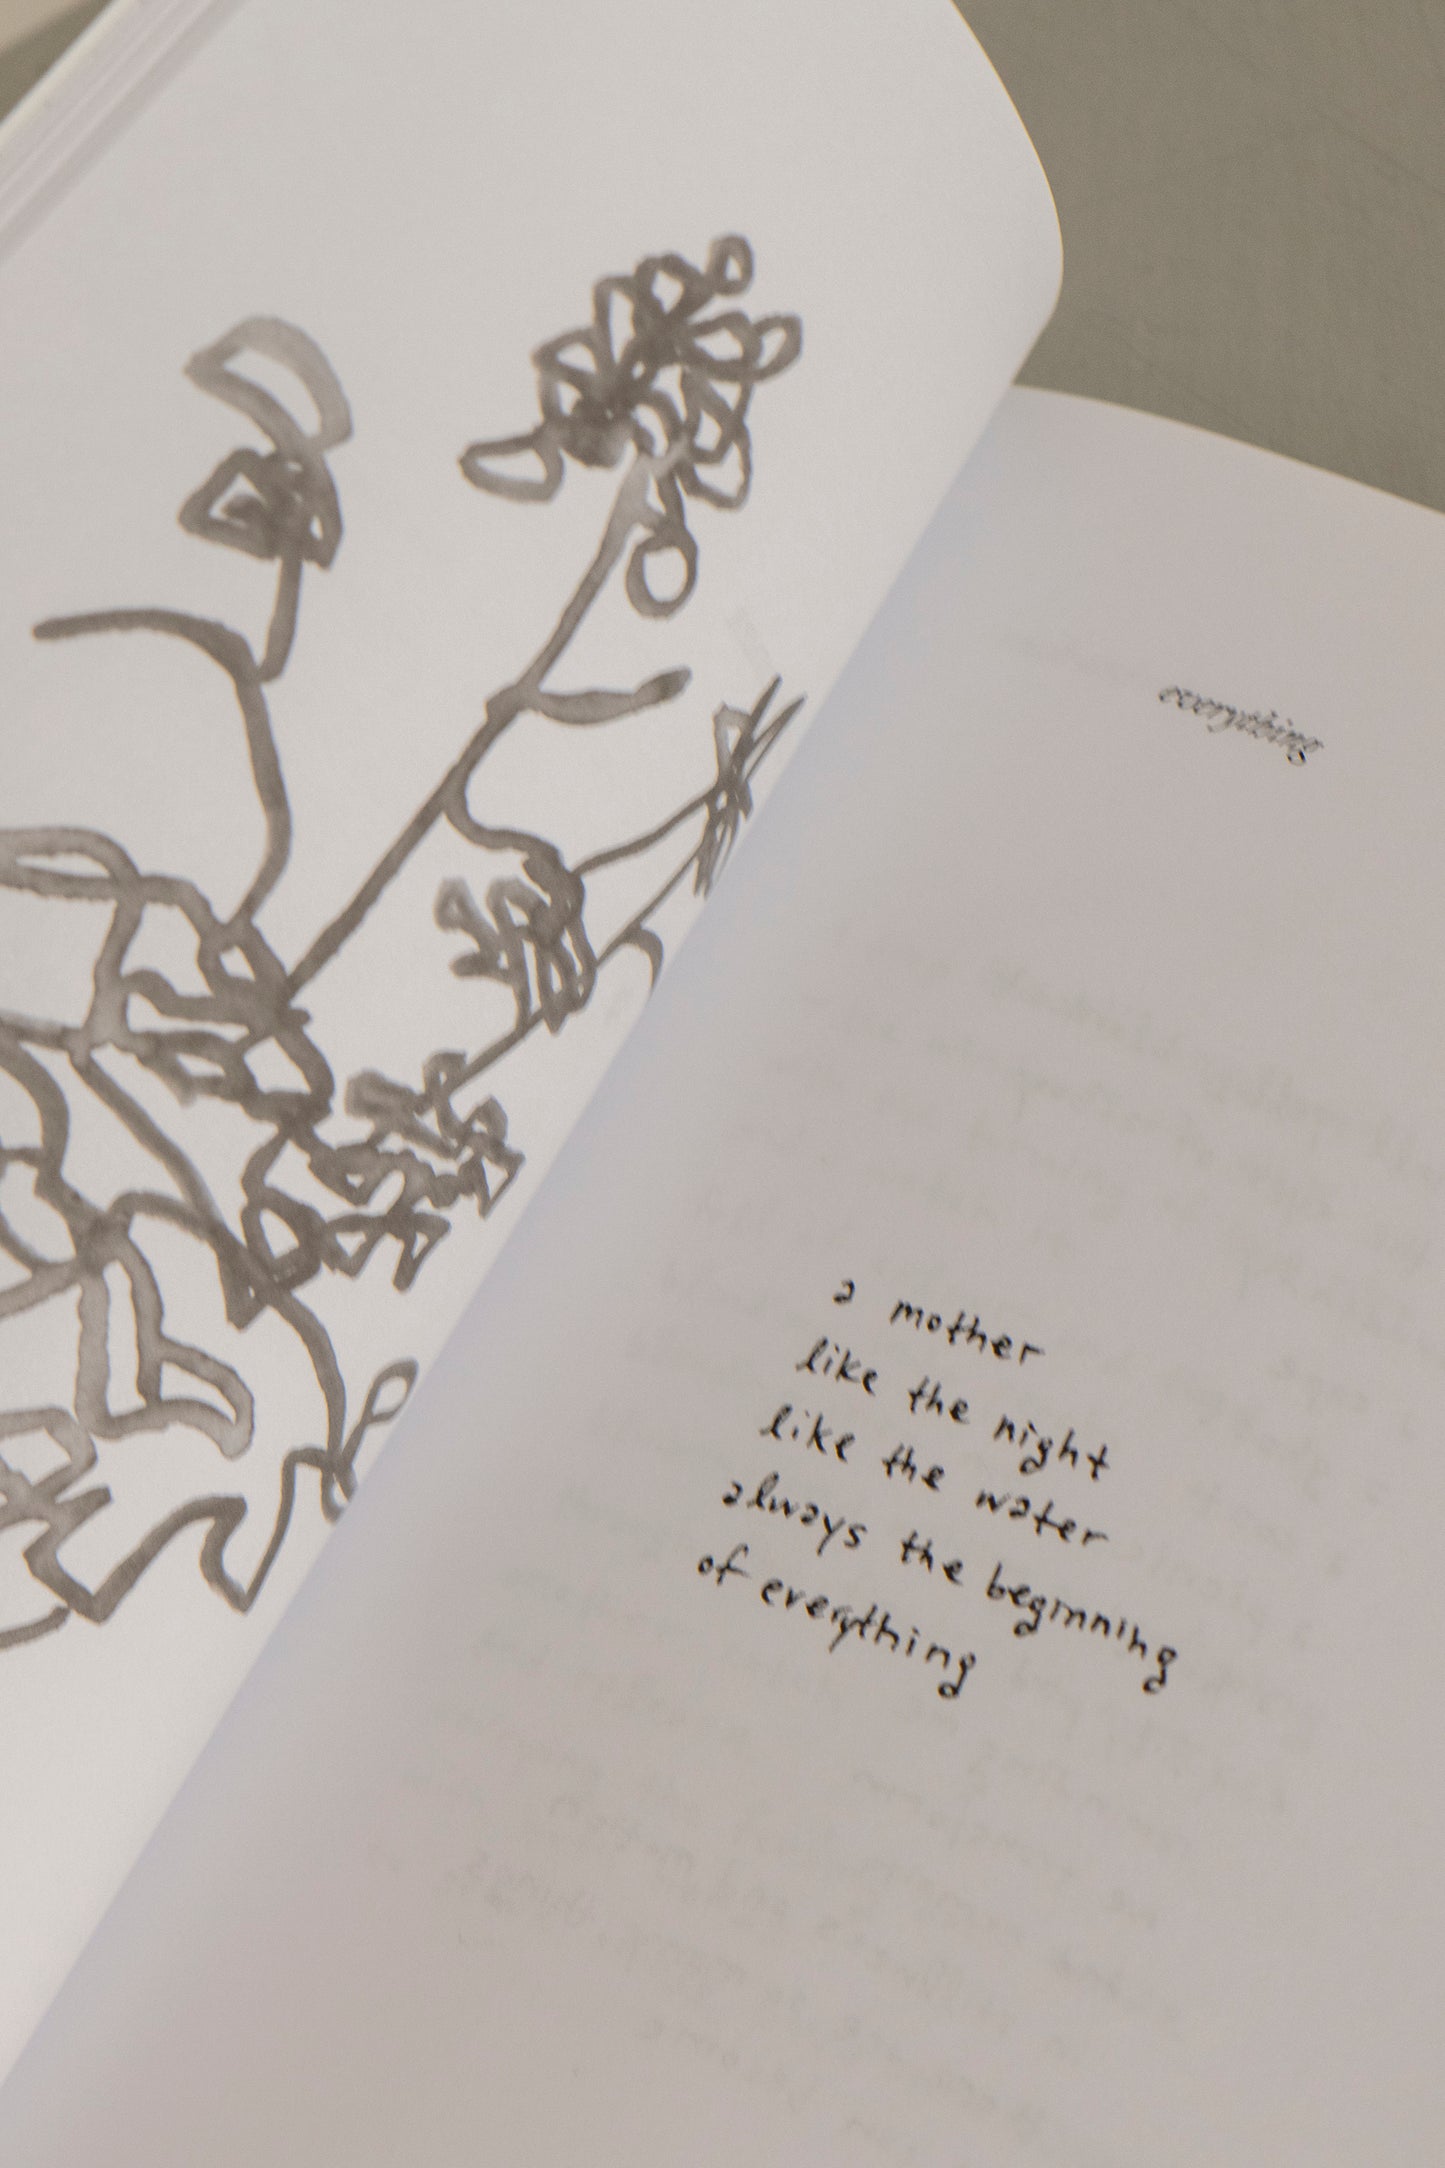 everything
a mother
like the night
like the water
always the beginning
of everything